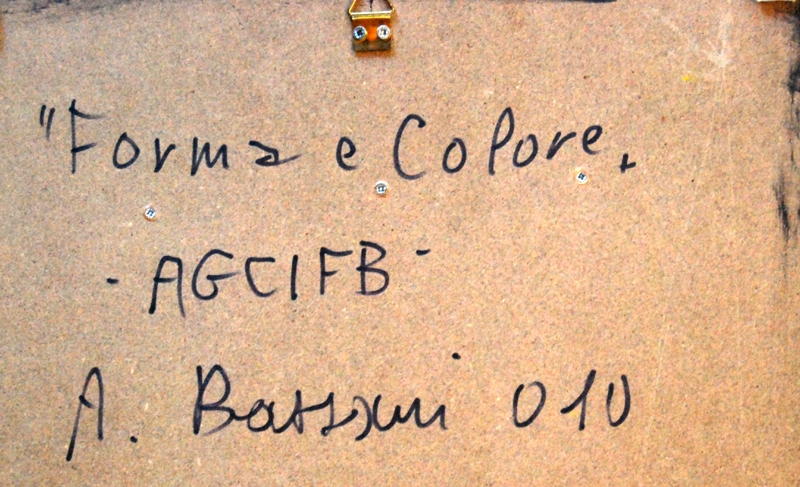 "Forma e Colore,
- AGCIFB -
A. 010